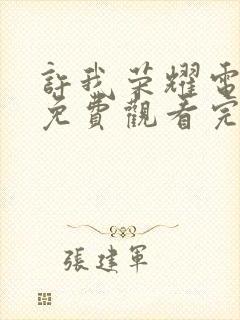 許我荣耀電
免費觀看完
張建軍